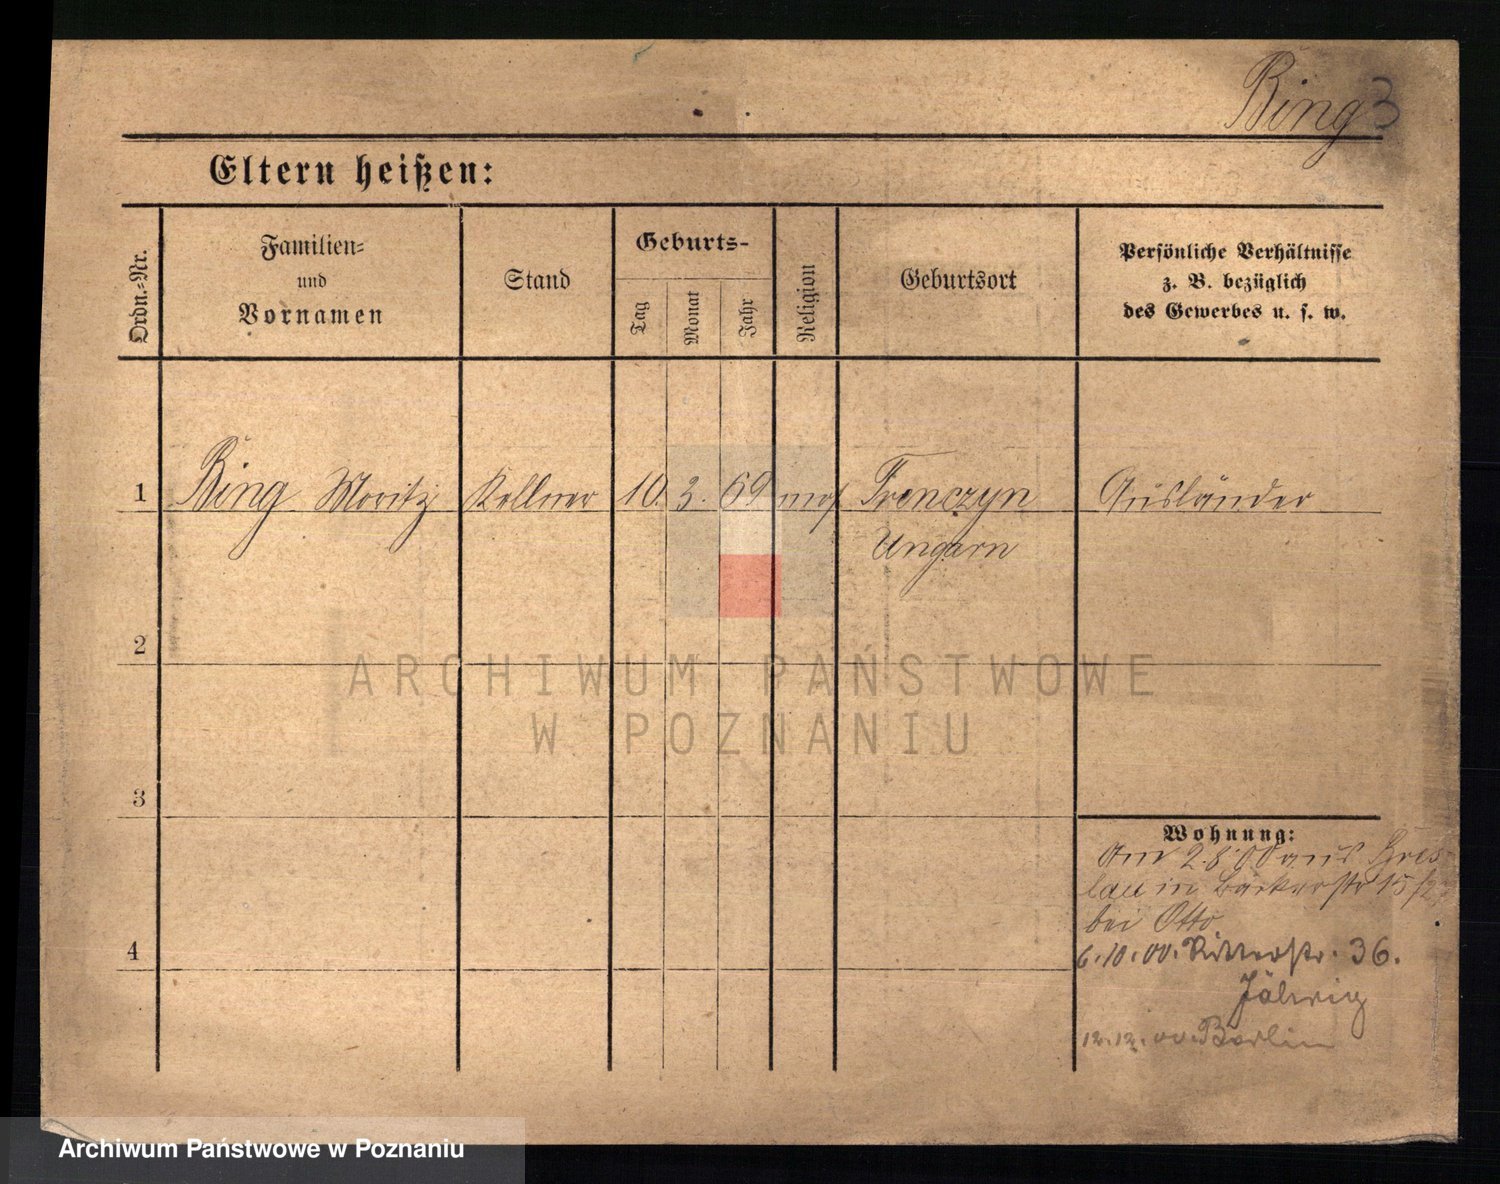 Bing 3
Eltern heißen:
Ordn.-Nr.
Familien-
und
Vornamen
Stand
Geburts-
Tag
Monat
Jahr
Religion
Geburtsort
Persönliche Verhältnisse
z. B. bezüglich
des Gewerbes u. s. w.
1 Bing Moritz Kellner 10. 3. 69 mos Trenczyn Ausländer
Ungarn
2
ARCHIWUM PAŃSTWOWE
W POZNANIU
3
Wohnung:
Am 2.8.00 aus Bres
lau in Bäckerstr 15
bei Otto
4
6.10.00. Ritterstr. 36.
12.12.00. Berlin
Archiwum Państwowe w Poznaniu